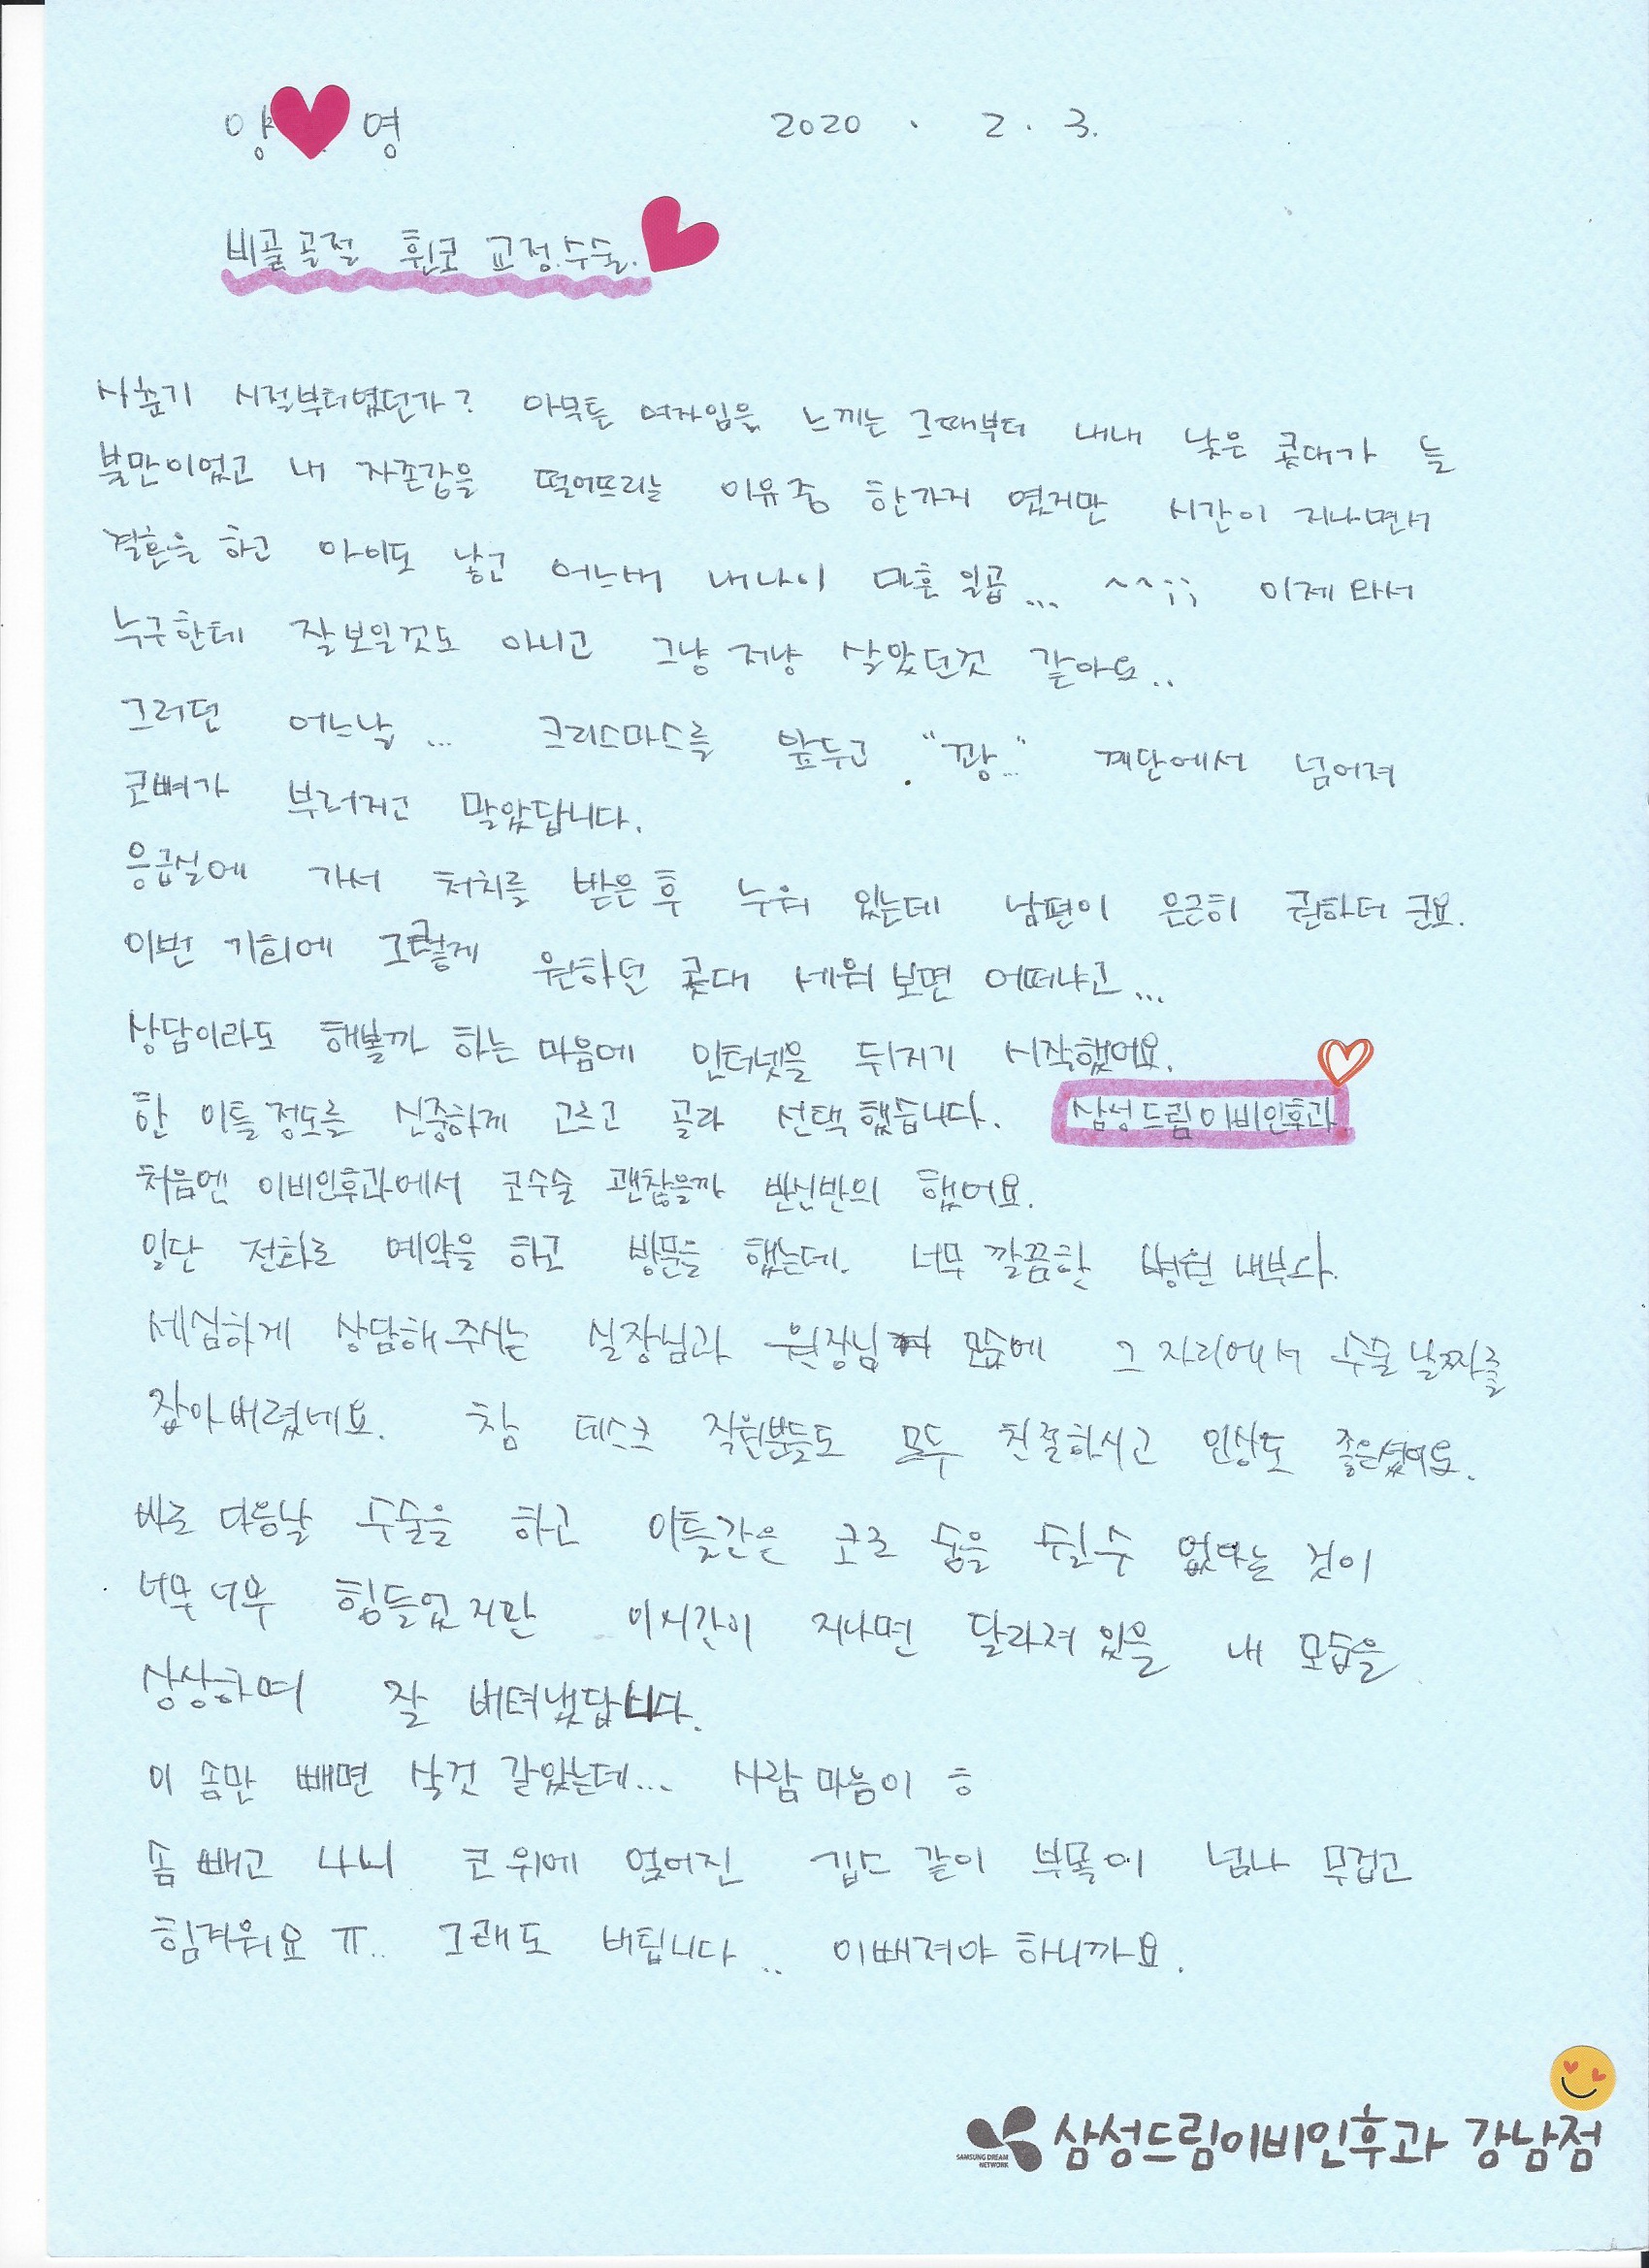 양 영 2020 . 2. 3.
비골골절 휜코 교정수술.
사춘기 시절부터였던가? 아무튼 여자임을 느끼는 그때부터 내내 낮은 콧대가 늘
불만이었고 내 자존감을 떨어뜨리는 이유중 한가지 였지만 시간이 지나면서
결혼을 하고 아이도 낳고 어느새 내나이 마흔 일곱... ^^;; 이제와서
누구한테 잘보일것도 아니고 그냥 저냥 살았던것 같아요..
그러던 어느날... 크리스마스를 앞두고 "꽝..." 계단에서 넘어져
코뼈가 부러지고 말았답니다.
응급실에 가서 처치를 받은 후 누워 있는데 남편이 은근히 권하더군요.
이번 기회에 그렇게 원하던 콧대 세워보면 어떠냐고...
상담이라도 해볼까 하는 마음에 인터넷을 뒤지기 시작했어요.
한 이틀정도를 신중하게 고르고 골라 선택했습니다. 삼성드림이비인후과
처음엔 이비인후과에서 코수술 괜찮을까 반신반의 했어요.
일단 전화로 예약을 하고 방문을 했는데. 너무 깔끔한 병원 내부와.
세심하게 상담해주시는 실장님과 원장님 모습에 그 자리에서 수술날짜를
잡아버렸네요. 참 데스크 직원분들도 모두 친절하시고 인상도 좋으셨어요.
바로 다음날 수술을 하고 이틀간은 코로 숨을 쉴수 없다는 것이
너무너무 힘들었지만 이시간이 지나면 달라져있을 내 모습을
상상하며 잘 버텨냈답니다.
이 솜만 빼면 살것 같았는데... 사람마음이 ㅎ
솜 빼고 나니 코 위에 얹어진 깁스 같이 부목이 넘나 무겁고
힘겨워요 ㅠ.. 그래도 버팁니다.. 이뻐져야 하니까요.
SAMSUNG DREAM NETWORK 삼성드림이비인후과 강남점